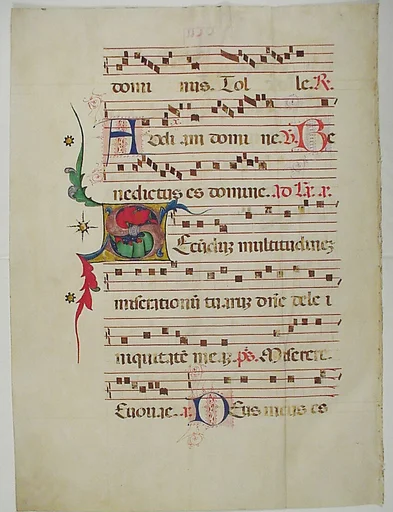 domi nis. Tol le. R.
A Vdi am domi ne. V. Be
nedictus es domine. ad
S Ecūduz multitudinez
miserationū tuaruz dn̄e dele i
niquitatē meaz. ps. Miserere.
Evovae. a. D Eus meus es